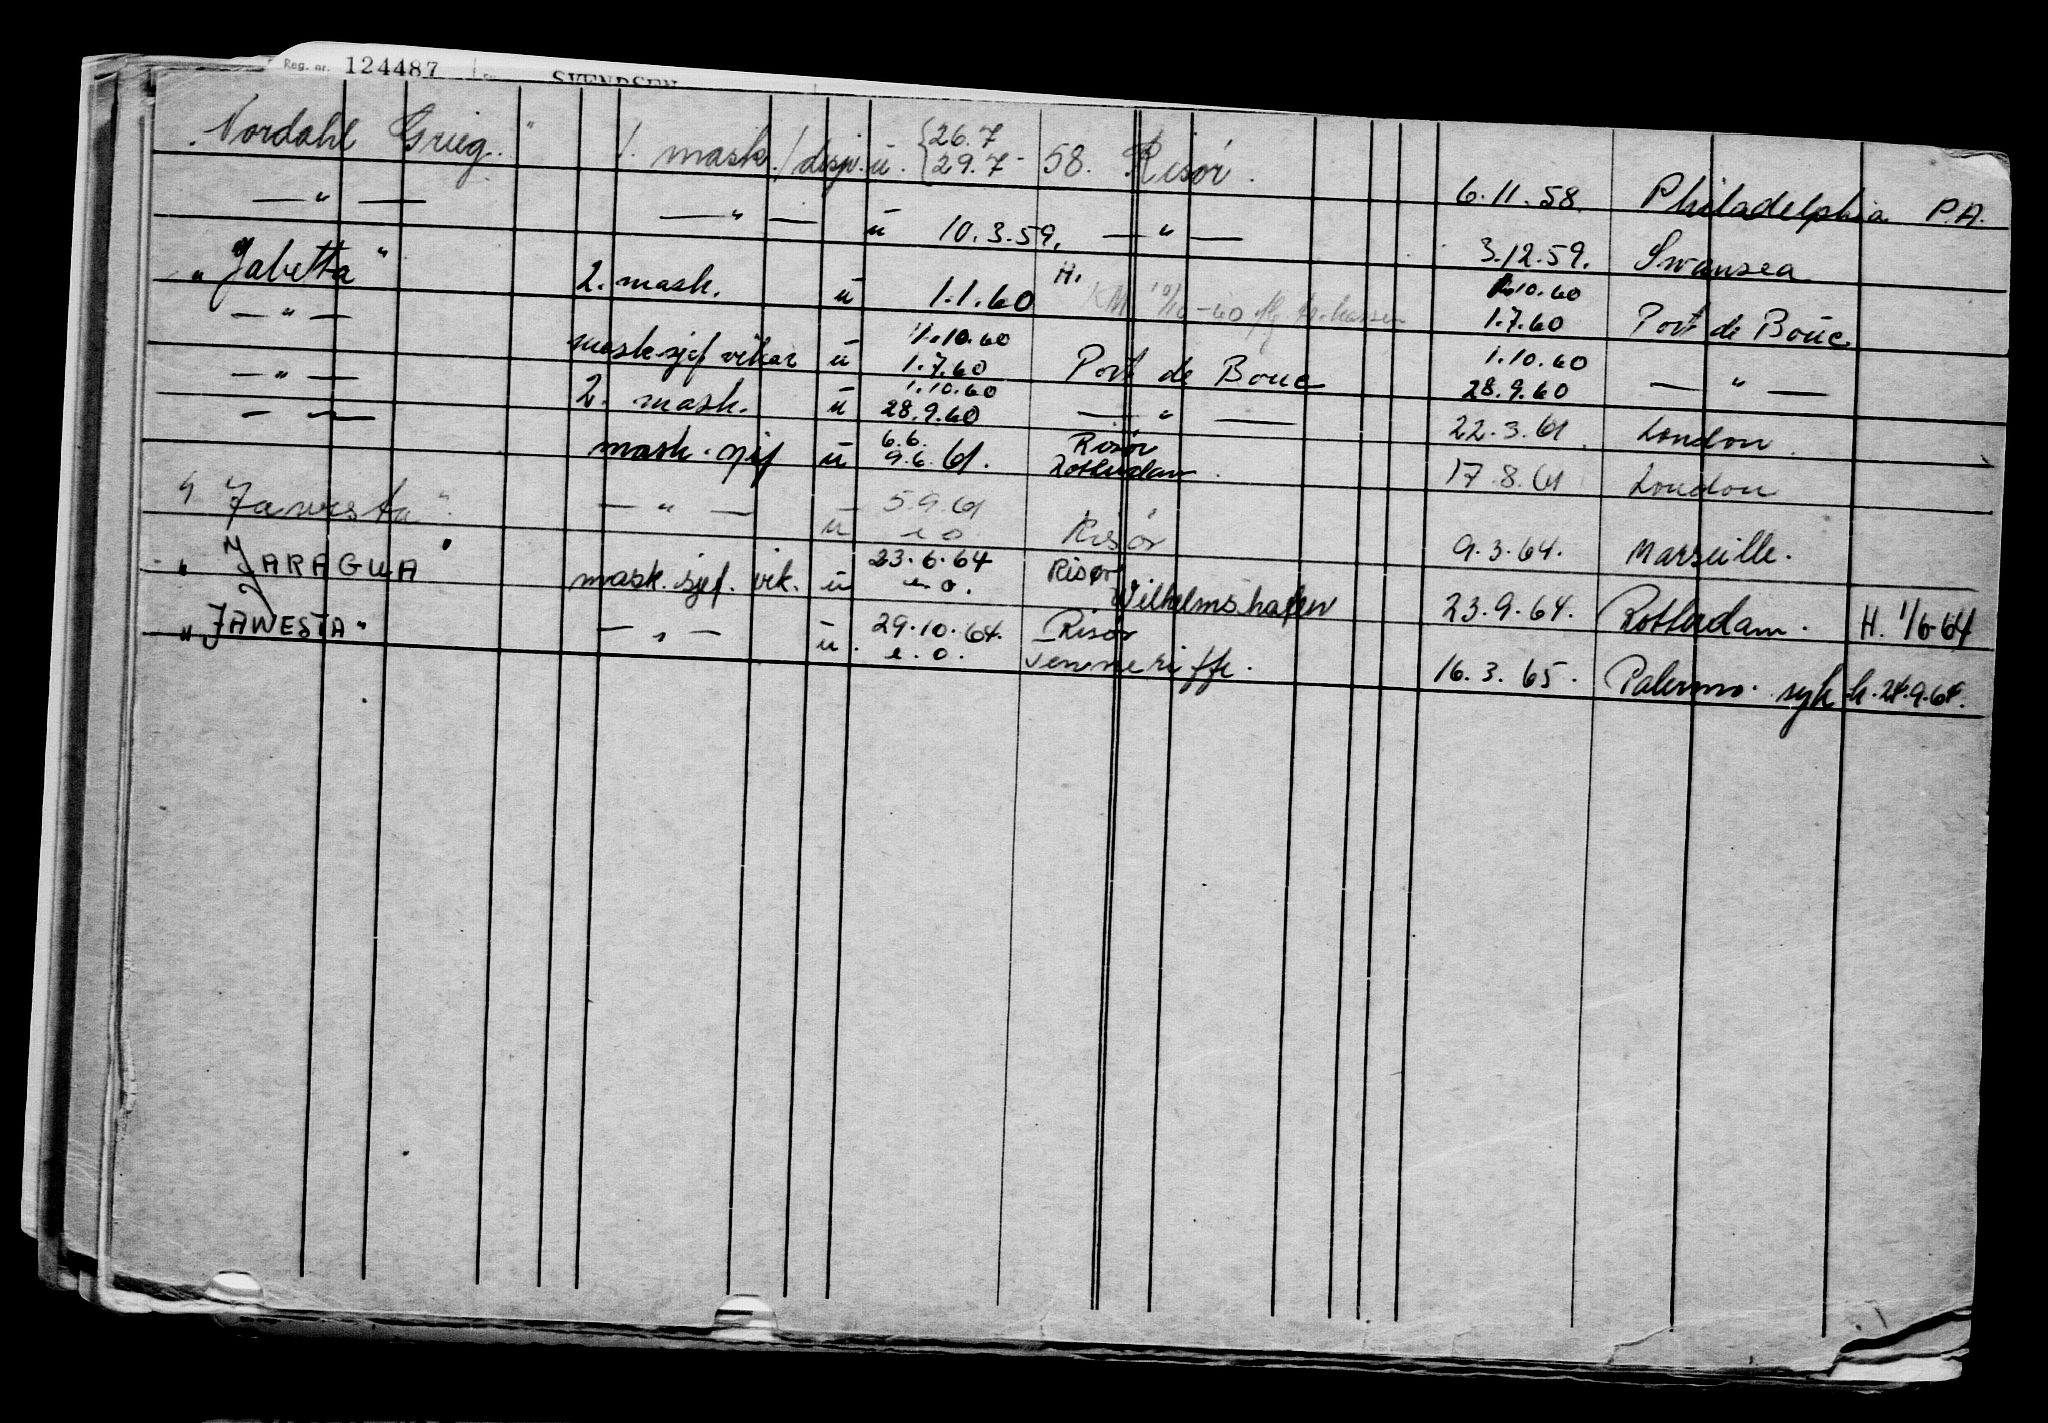 Reg. nr. 124487 SVENDSEN
"Nordahl Grieg" 1. mask./disp. u. {26.7 29.7 58. Risör. 6.11.58. Philadelphia P.A.
—"— —"— u 10.3.59. —"— 3.12.59. Swansea
"Jabetta" 2. mask. u 1.1.60 H. 1.10.60 1.7.60 Port de Bouc
—"— mask.sjef vikar u 1.10.60 1.7.60 Port de Bouc 1.10.60 28.9.60 —"—
—"— 2. mask. u 1.10.60 28.9.60 —"— 22.3.61. London.
—"— mask.sjef u 6.6. 9.6.61. Risör Rotterdam. 17.8.61 London
"Jawesta" —"— u 5.9.61 e.o. Risör 9.3.64. Marseille.
"JARAGUA" mask.sjef. vik. u 23.6.64 e.o. Risør Wilhelmshafen 23.9.64. Rotterdam. H. 1/6-64
"JAWESTA" —"— u. 29.10.64. e.o. Risør Tenneriffe. 16.3.65. Palermo. syk h. 24.9.64.